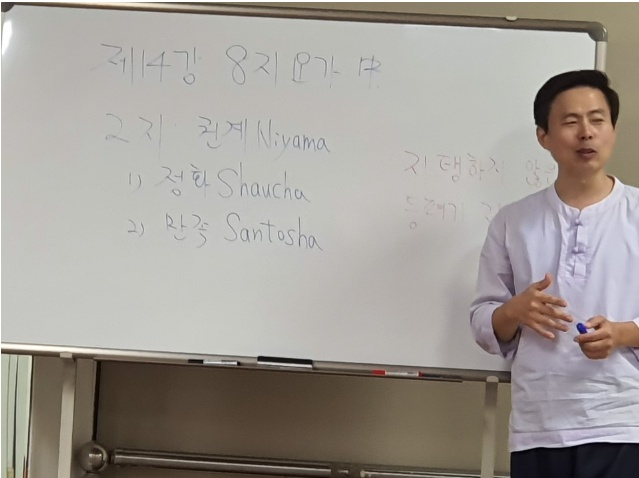 제14강 8지 요가 中
2지. 권계 Niyama
1) 정화 Shaucha
2) 만족 Santosha
지탱하지